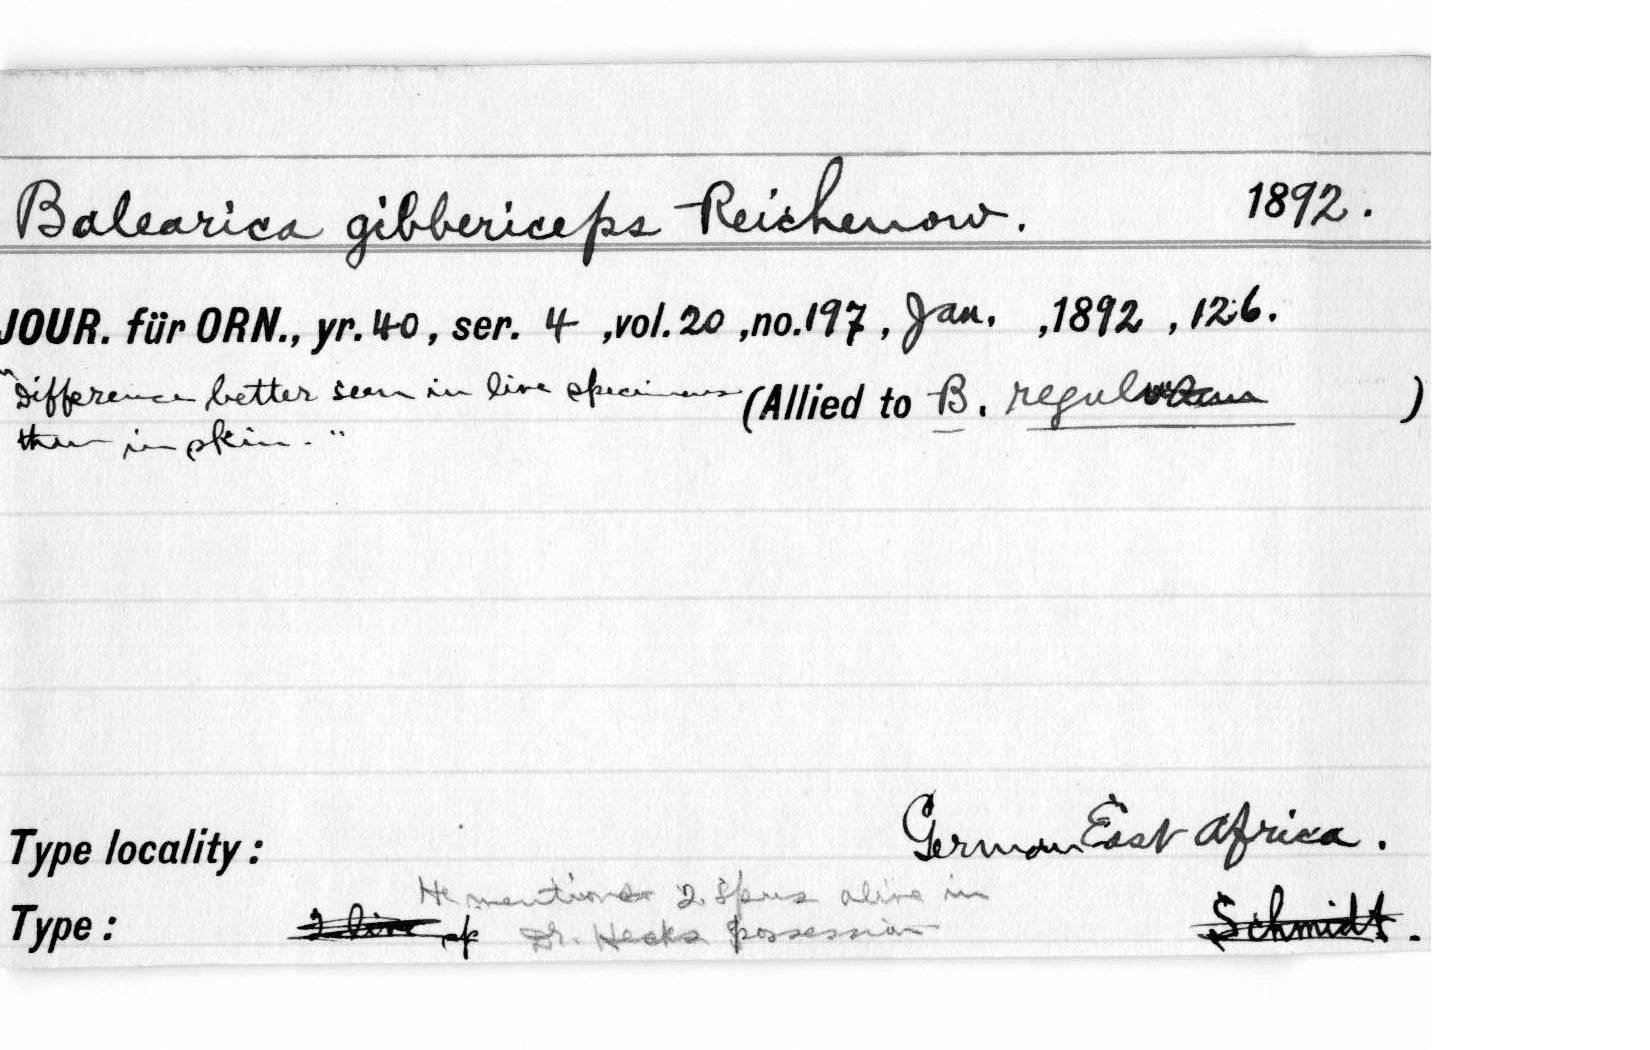 Balearica gibbericeps Reichenow. 1892.
JOUR. für ORN., yr. 40, ser. 4 ,vol. 20 ,no. 197 , Jan. ,1892 , 126.
"Difference better seen in live specimens (Allied to B. regulorum )
than in skin."
Type locality: German East Africa.
He mentions 2 spms alive in
Type: 2 live sp Dr. Hecks possession Schmidt.